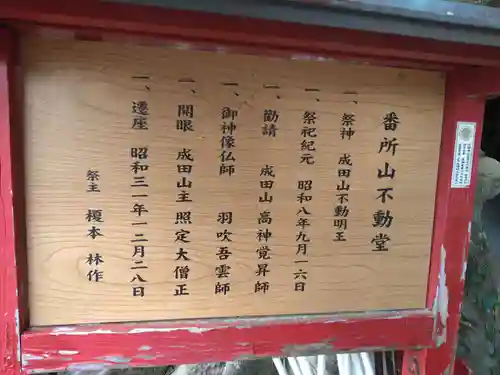 番所山不動堂
一、祭神 成田山不動明王
一、祭祀紀元 昭和八年九月一六日
一、勧請 成田山 高神覚昇師
一、御神像仏師 羽吹吾雲師
一、開眼 成田山主 照定大僧正
一、遷座 昭和三一年一二月二八日
祭主 榎本 林作